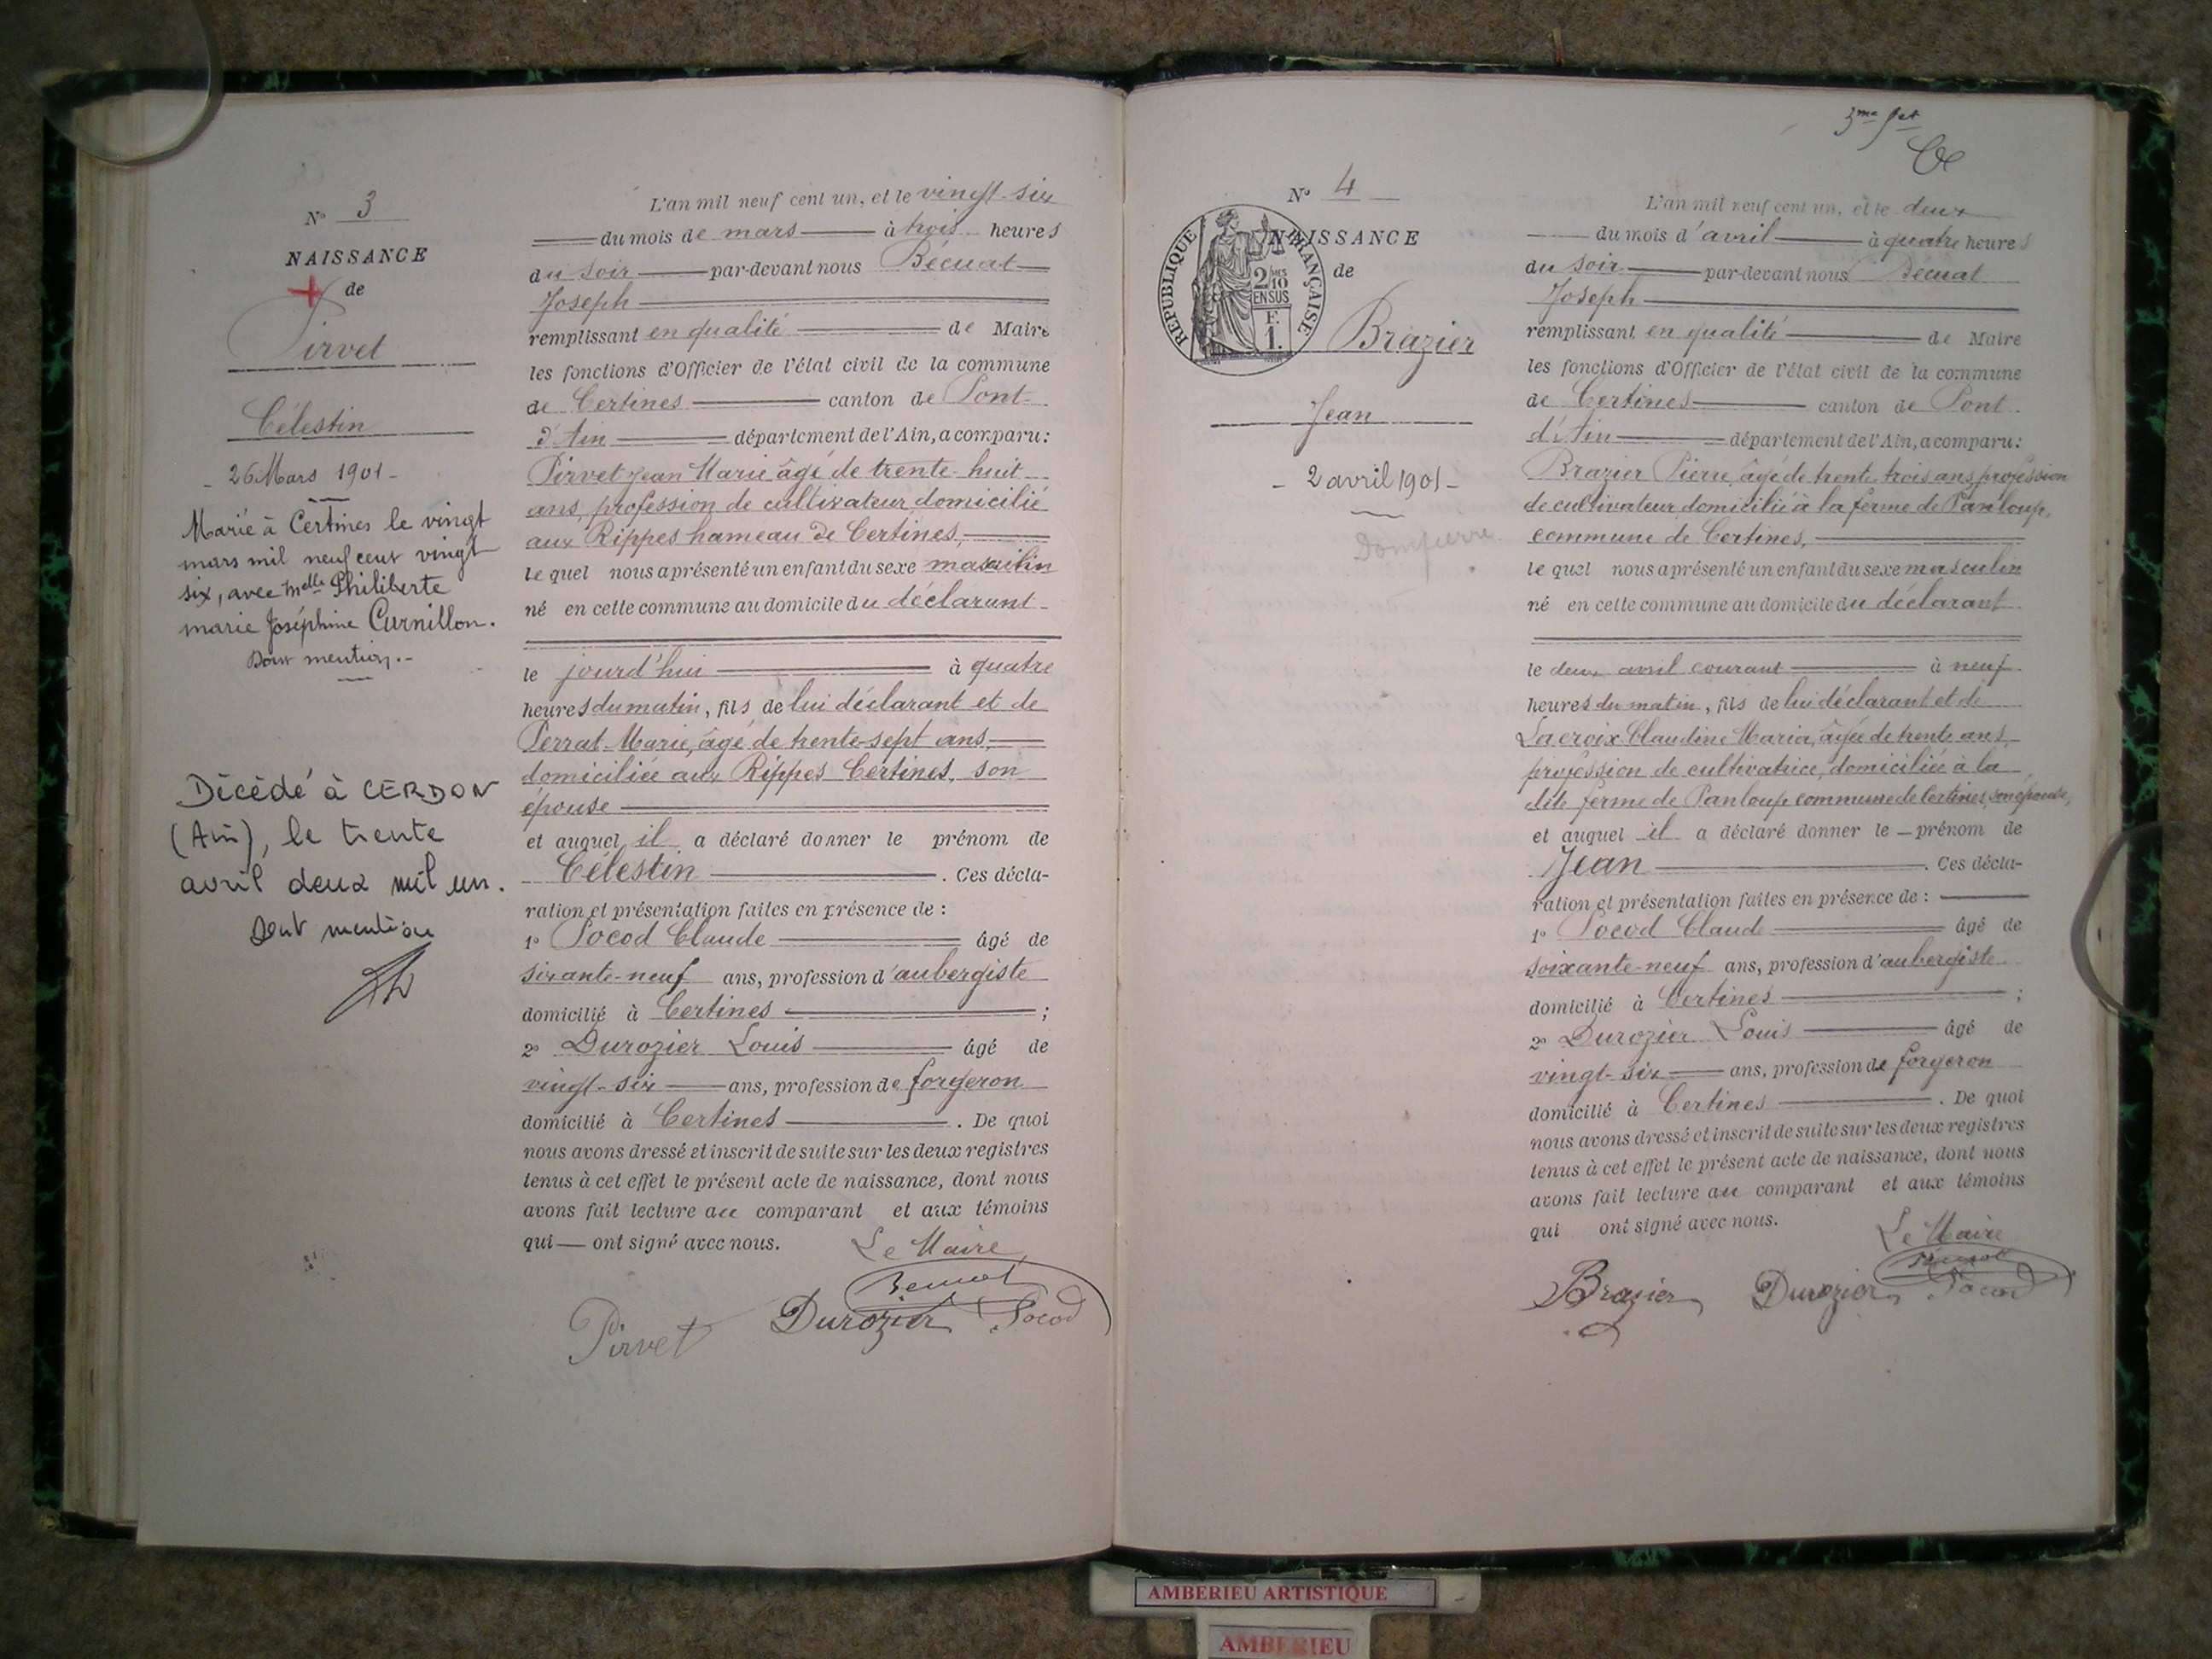 N° 3
NAISSANCE
de
Pirvet
Célestin
- 26 Mars 1901 -
Marié à Certines le vingt
mars mil neuf cent vingt
six, avec Melle Philiberte
marie Joséphine Curnillon.
Dont mention.-
Décédé à CERDON
(Ain), le trente
avril deux mil un.
Dont mention
L'an mil neuf cent un, et le vingt-six
du mois de mars à trois heures
du soir par-devant nous Bécuat
Joseph
remplissant en qualité de Maire
les fonctions d'Officier de l'état civil de la commune
de Certines canton de Pont-
d'Ain département de l'Ain, a comparu:
Pirvet Jean Marie âgé de trente-huit
ans, profession de cultivateur domicilié
aux Rippes hameau de Certines,
le quel nous a présenté un enfant du sexe masculin
né en cette commune au domicile du déclarant
le jourd'hui à quatre
heures du matin, fils de lui déclarant et de
Perrat Marie, âgé de trente-sept ans,
domiciliée aux Rippes Certines, son
épouse
et auquel il a déclaré donner le prénom de
Célestin. Ces décla-
ration et présentation faites en présence de :
1° Pocod Claude âgé de
sixante-neuf ans, profession d'aubergiste
domicilié à Certines ;
2° Durozier Louis âgé de
vingt-six ans, profession de forgeron
domicilié à Certines. De quoi
nous avons dressé et inscrit de suite sur les deux registres
tenus à cet effet le présent acte de naissance, dont nous
avons fait lecture au comparant et aux témoins
qui — ont signé avec nous.
Le Maire
Becuat
Pirvet Durozier Pocod
3me
N° 4
NAISSANCE
de
RÉPUBLIQUE FRANÇAISE
2/10
EN SUS
F.
1.
Brazier
Jean
- 2 avril 1901 -
Dompierre
L'an mil neuf cent un, et le deux
du mois d'avril à quatre heures
du soir par-devant nous Bécuat
Joseph
remplissant en qualité de Maire
les fonctions d'Officier de l'état civil de la commune
de Certines canton de Pont-
d'Ain département de l'Ain, a comparu:
Brazier Pierre, âgé de trente trois ans, profession
de cultivateur domicilié à la ferme de Panloup,
commune de Certines,
le quel nous a présenté un enfant du sexe masculin
né en cette commune au domicile du déclarant
le deux avril courant à neuf
heures du matin, fils de lui déclarant et de
Lacroix Claudine Maria, âgée de trente ans,
profession de cultivatrice, domiciliée à la
dite ferme de Panloup commune de Certines, son épouse,
et auquel il a déclaré donner le — prénom de
Jean. Ces décla-
ration et présentation faites en présence de :
1° Pocod Claude âgé de
soixante-neuf ans, profession d'aubergiste
domicilié à Certines ;
2° Durozier Louis âgé de
vingt-six ans, profession de forgeron
domicilié à Certines. De quoi
nous avons dressé et inscrit de suite sur les deux registres
tenus à cet effet le présent acte de naissance, dont nous
avons fait lecture au comparant et aux témoins
qui ont signé avec nous.
Le Maire
Bécuat
Brazier Durozier Pocod
AMBERIEU ARTISTIQUE
AMBERIEU